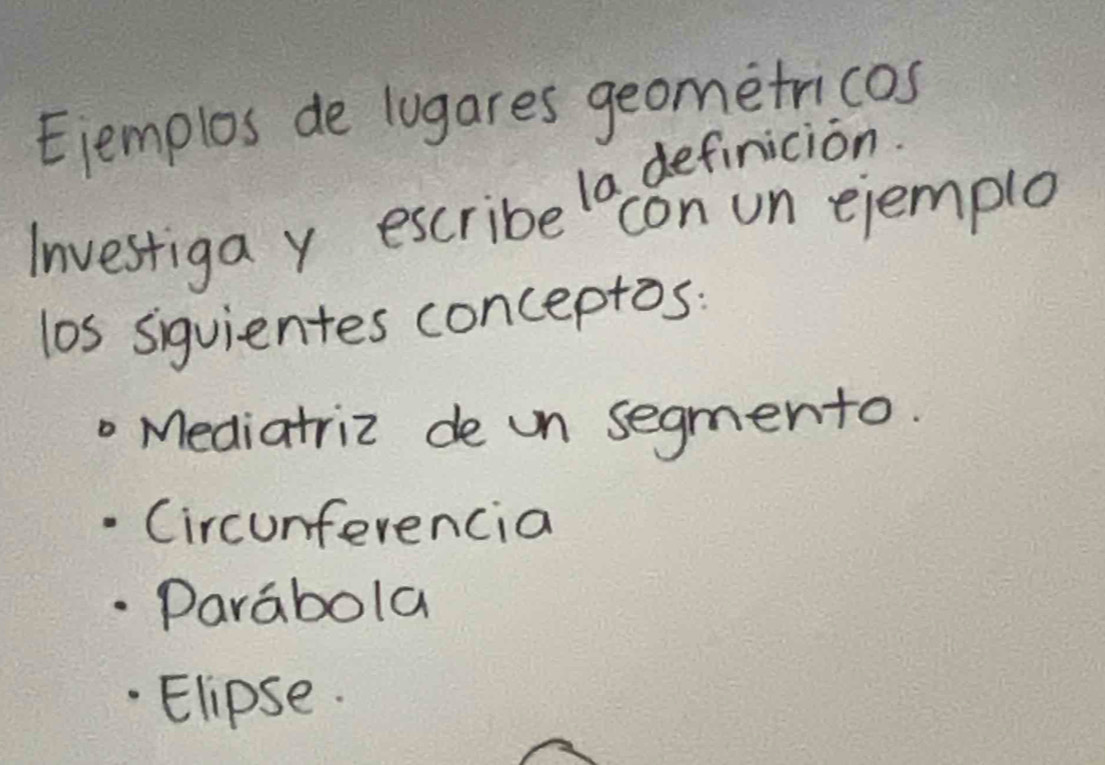 Ejemplos de lugares geométricos
la definición.
Investiga y escribe con un ejemplo
los siguientes conceptos:
• Mediatriz de un segmento.
• Circunferencia
• Parábola
• Elipse.